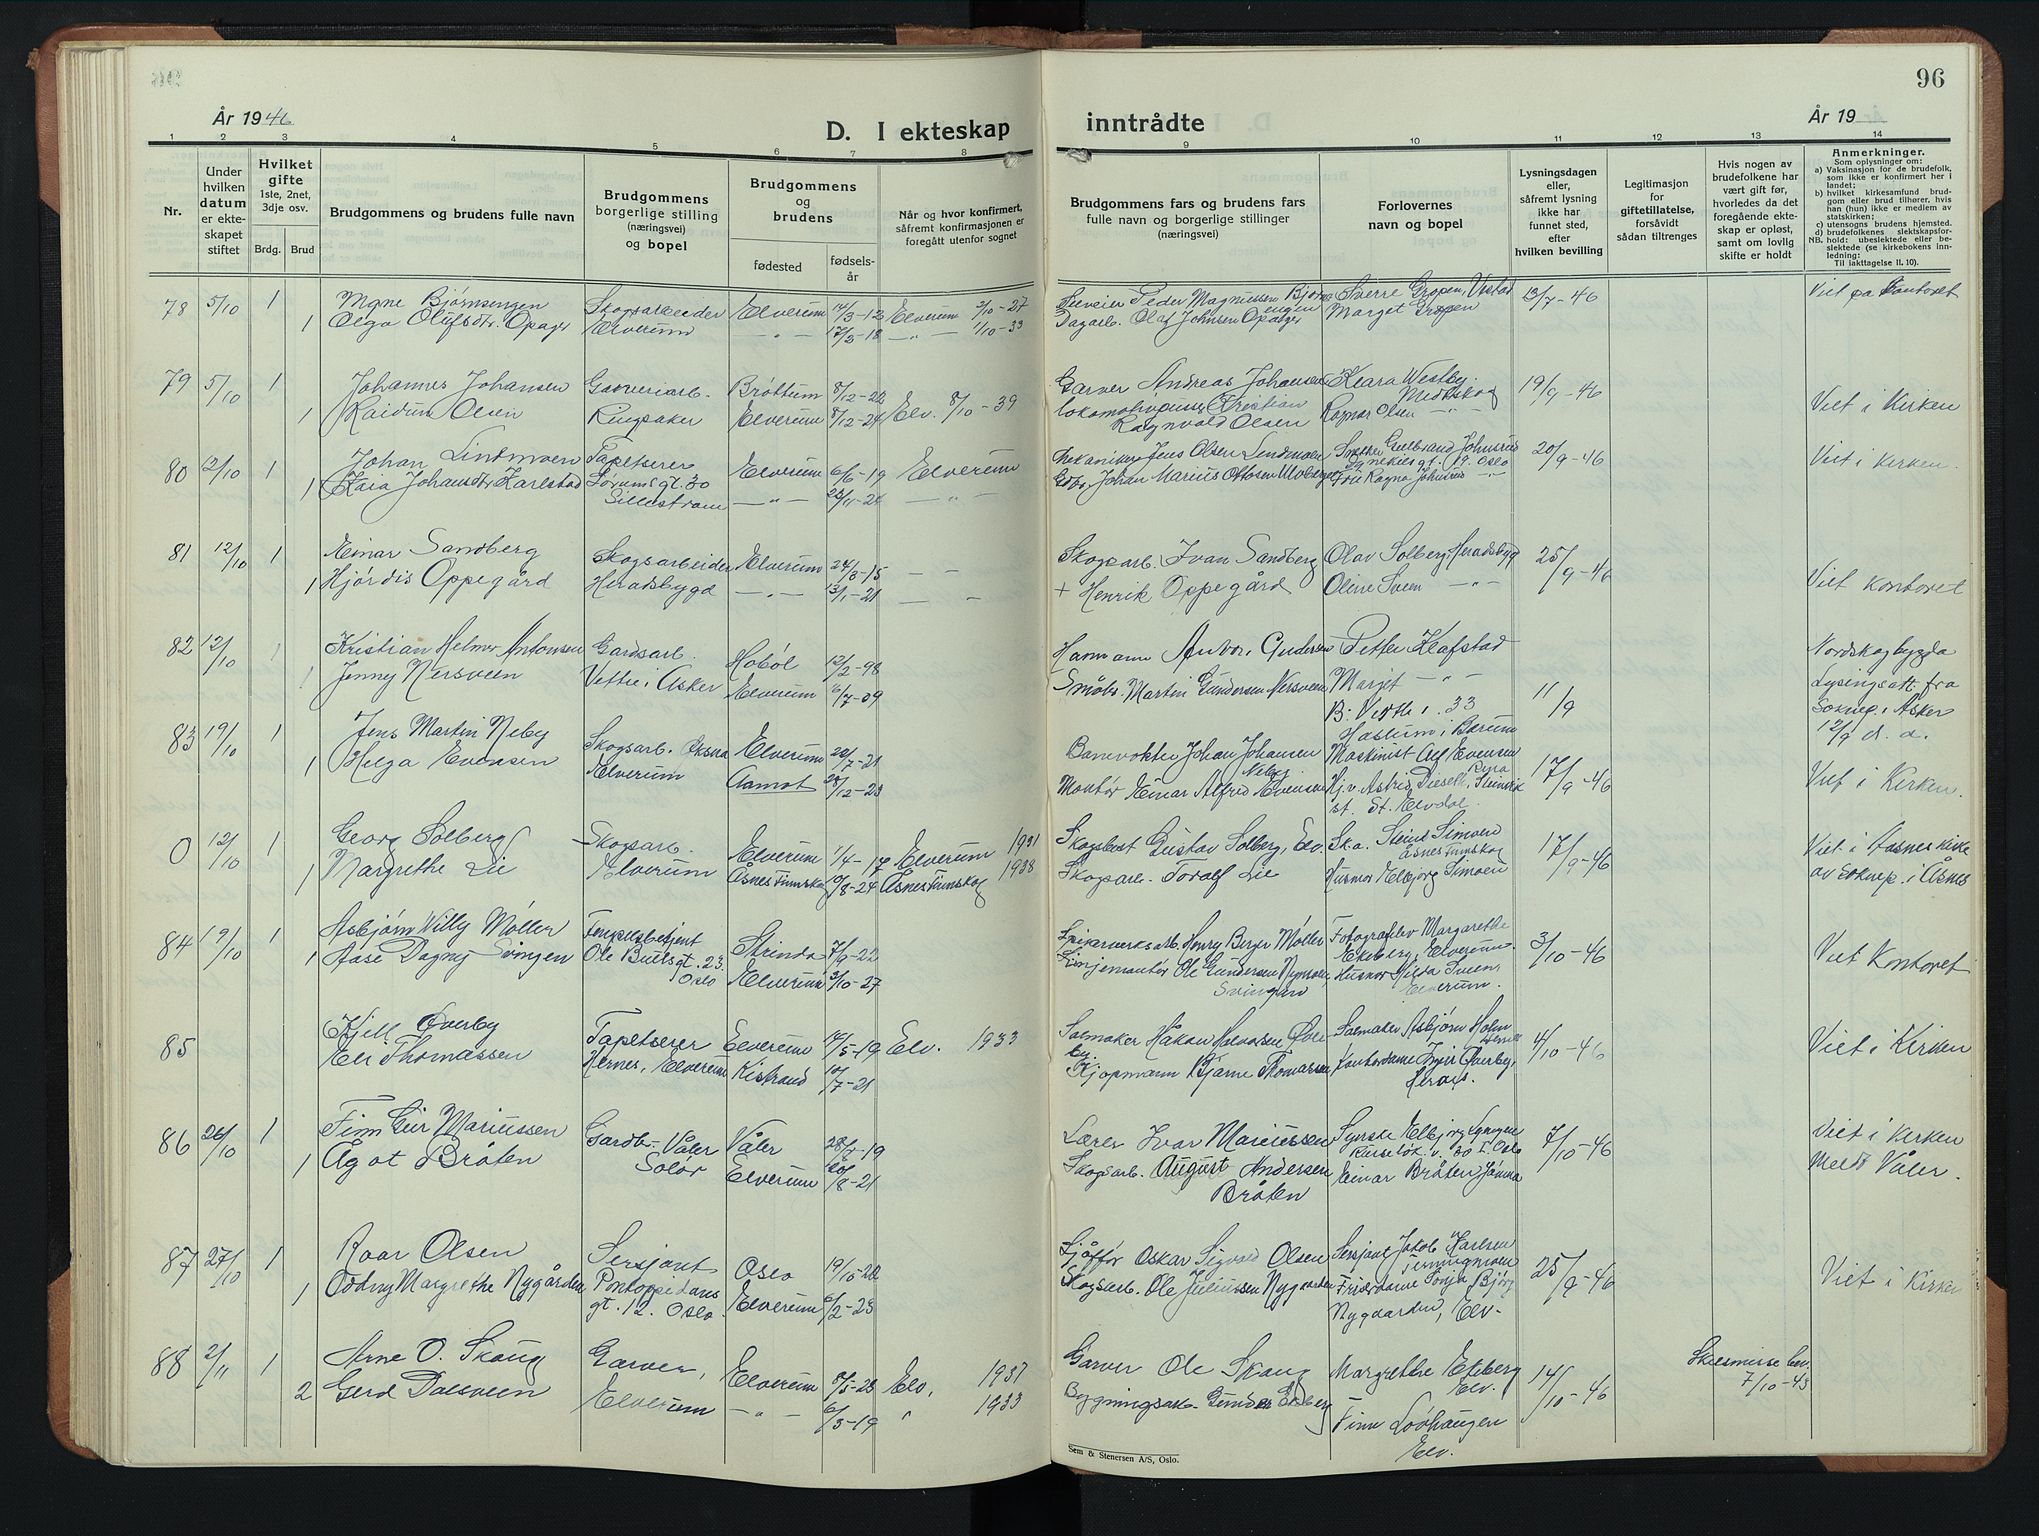 96
År 1946
D. I ekteskap inntrådte
År 19
1 2 3 4 5 6 7 8 9 10 11 12 13 14
Nr.
Under hvilken datum er ekteskapet stiftet
Hvilket gifte 1ste, 2net, 3dje osv.
Brdg. Brud
Brudgommens og brudens fulle navn
Brudgommens borgerlige stilling (næringsvei) og bopel
Brudgommens og brudens
fødested
fødselsår
Når og hvor konfirmert, såfremt konfirmasjonen er foregått utenfor sognet
Brudgommens fars og brudens fars fulle navn og borgerlige stillinger (næringsvei)
Forlovernes navn og bopel
Lysningsdagen eller, såfremt lysning ikke har funnet sted, efter hvilken bevilling
Legitimasjon for giftetillatelse, forsåvidt sådan tiltrenges
Hvis nogen av brudefolkene har vært gift før, hvorledes da det foregående ekteskap er opløst, samt om lovlig skifte er holdt
Anmerkninger.
Som oplysninger om:
a) Vaksinasjon for de brudefolk, som ikke er konfirmert her i landet;
b) hvilket kirkesamfund brudgom eller brud tilhører, hvis han (hun) ikke er medlem av statskirken;
c) utensogns brudens hjemsted.
d) brudefolkenes slektskapsforhold: ubeslektede eller beslektede (se kirkebokens innledning:
NB.
Til iakttagelse II. 10).
78 5/10 1 Mgne Bjørnsengen Skogsarbeider Elverum 14/3-12 Elverum 2/10-27 Peder Magnussen Bjørnsengen Sverre Gropen, Vestad 13/7-46 Viet på kontoret
1 Olga Olufsdtr. Opager Elverum -„- 17/3-18 -„- 1/10-33 Dagarb. Olaf Johnsen Opager Marget Gropen
79 5/10 1 Johannes Johansen Garveriarb. Brøttum 8/12-22 Garver Andreas Johansen Klara Westby 19/9-46 Viet i Kirken
1 Raidun Olsen Ringsaker Elverum 8/12-24 Elv. 8/10-39 Kristian Ragnvald Olsen Ragnar Olsen -„-
80 12/10 1 Johan Lindmoen Tapetserer Elverum 6/6-19 Elverum Mekaniker Jens Olsen Lindmoen Gulbrand Johnsrud Oslo 20/9-46 Viet i Kirken.
1 Klara Johansdtr. Karlstad Sorumsgt. 30 Lillestrøm -„- 25/11-24 -„- Johan Marius Ottosen Fru Ragna Johnsrud -„-
81 12/10 1 Einar Sandberg Skogsarbeider Elverum 24/3-15 - - Skogsarb. Ivar Sandberg Olav Solberg, Heradsbygd 25/9-46
1 Hjørdis Oppegård Heradsbygd -„- 13/1-21 - - + Henrik Oppegård Oline Sveen -„- Viet Kontoret
82 12/10 1 Kristian Helmer Antonsen Gardsarb. Hobøl 12/2-98 Gundersen Petter Klafstad Nordskogbygda
1 Jenny Nersveen Vettre, Asker Elverum 6/7-09 Småbr. Martin Gundersen Nersveen Marget -„- 11/9 Lysingsatt. fra Sokнep. i Asker 12/9 d. a.
83 19/10 1 Jens Martin Neby Skogsarb. Øksna Elverum 20/7-21 Banevokter Johan Johansen Neby Maskinist Alf Evensen 17/9-46 Viet i Kirken.
1 Helga Evensen Elverum Aamot 28/12-23 Montør Einar Alfred Evensen
0 12/10 Georg Solberg Skogsarb. Elverum 1/4-17 Elverum 1931 Gustav Solberg, Elv. Simoen Åsnes Finnskog 17/9-46 Viet i Hasnes Kirke
1 Margrethe Lie Elverum Åsnes Finnskog 10/8-24 Åsnes Finnskog 1938 Skogsarb. Toralf Lie Husmor Elbjørg Simoen av Soknep. i Åsnes
84 19/10 1 Asbjørn Willy Møller Fengselsbetjent Strinda 7/9-22 Spikerverksarb. Henry Berger Møller Fotografelev Margarethe Ekeberg, Elverum 3/10-46 Viet Kontoret
1 Aase Dagny Svingen Ole Bullsgt. 23. Oslo Elverum 3/10-27 Linjemontør Ole Gundersen Svingen Husmor Hilda Sveen Elverum.
85 Kjell Øverby Tapetserer Elverum 14/5-19 Elv. 1933 Salmaker Håkon Halvorsen Øverby Salmaker Asbjørn Holm 4/10-46 Viet i Kirken
Eli Thomassen Hernes, Elverum Kistrand 10/7-21 Kjøpmann Bjarne Thomassen Kontordame Øverby, Hernes.
86 26/10 1 Finn Geir Mariussen Gardb. Våler Solør Våler 28/2-19 Lærer Ivar Mariussen Elbjørg Oslo 7/10-46 Viet i Kirken
1 Ågot Bråten Elverum 20/8-21 Skogsarb. August Andersen Bråten Einar Bråten, Jømna Meldt Våler.
87 27/10 1 Roar Olsen Sersjant Oslo 19/10-22 Sjåfør Oskar Sigvald Olsen Sersjant Jakob Karlsen 25/9-46 Viet i Kirken
1 Oddny Margrethe Nygården Pontoppidans gt. 12. Oslo. Elverum 6/2-23 Skogsarb. Ole Juliussen Nygaarden Frisørdame Sonja Bjørg Nygaarden, Elv.
88 2/11 1 Arne O. Skaug Garver, Elverum 8/5-23 Elv. 1937 Garver Ole Skaug Margrethe Ekeberg Elv. 14/10-46 Skilsmisse bev. 7/10-43
2 Gerd Dalsveen Elverum -„- 6/3-19 „ 1933 Bygningsarb. Gunder Finn Lovhaugen Elv.
Sem & Stenersen A/S, Oslo.